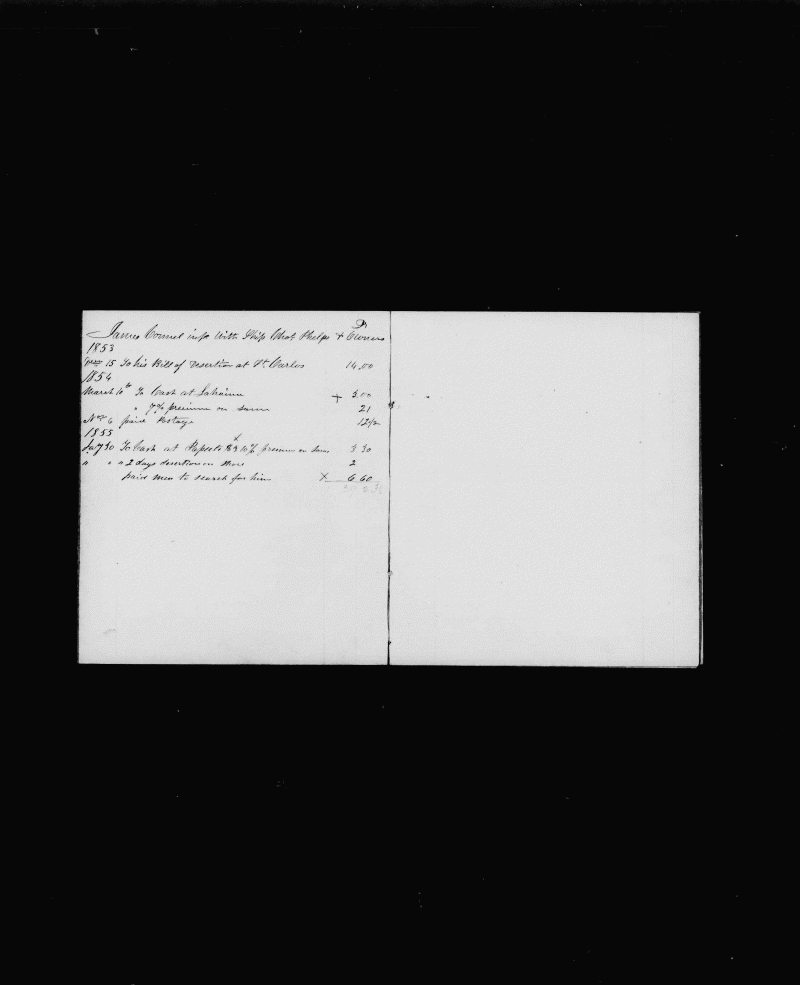 Dr
James Connel in % With Ship Chas Phelps & Owners
1853
15 To his Bill of Desertion at St Carlos 14.00
1854
March 10th To Cash at Lahaina + 3.00
" 7% premium on same 21
Nov 6 paid Postage 12½
1855
Jany 30 To Cash at $3 10% premium on same 3 30
" " " 2 days desertion on shore 2
paid men to search for him X 6 60